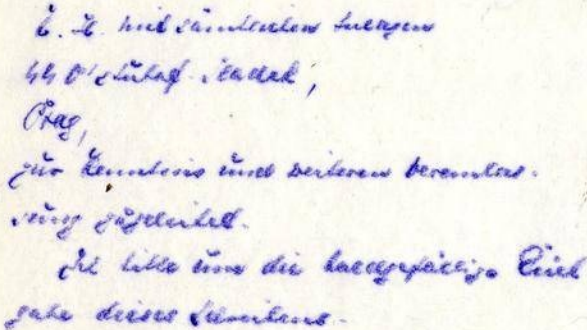 U. R. mit sämtlichen
SS O'Stubaf.
Prag,
zur Kenntnis und weiteren Veranlas-
sung zugeleitet.
Ich bitte um die baldgefällige Rück
gabe dieses Schreibens.